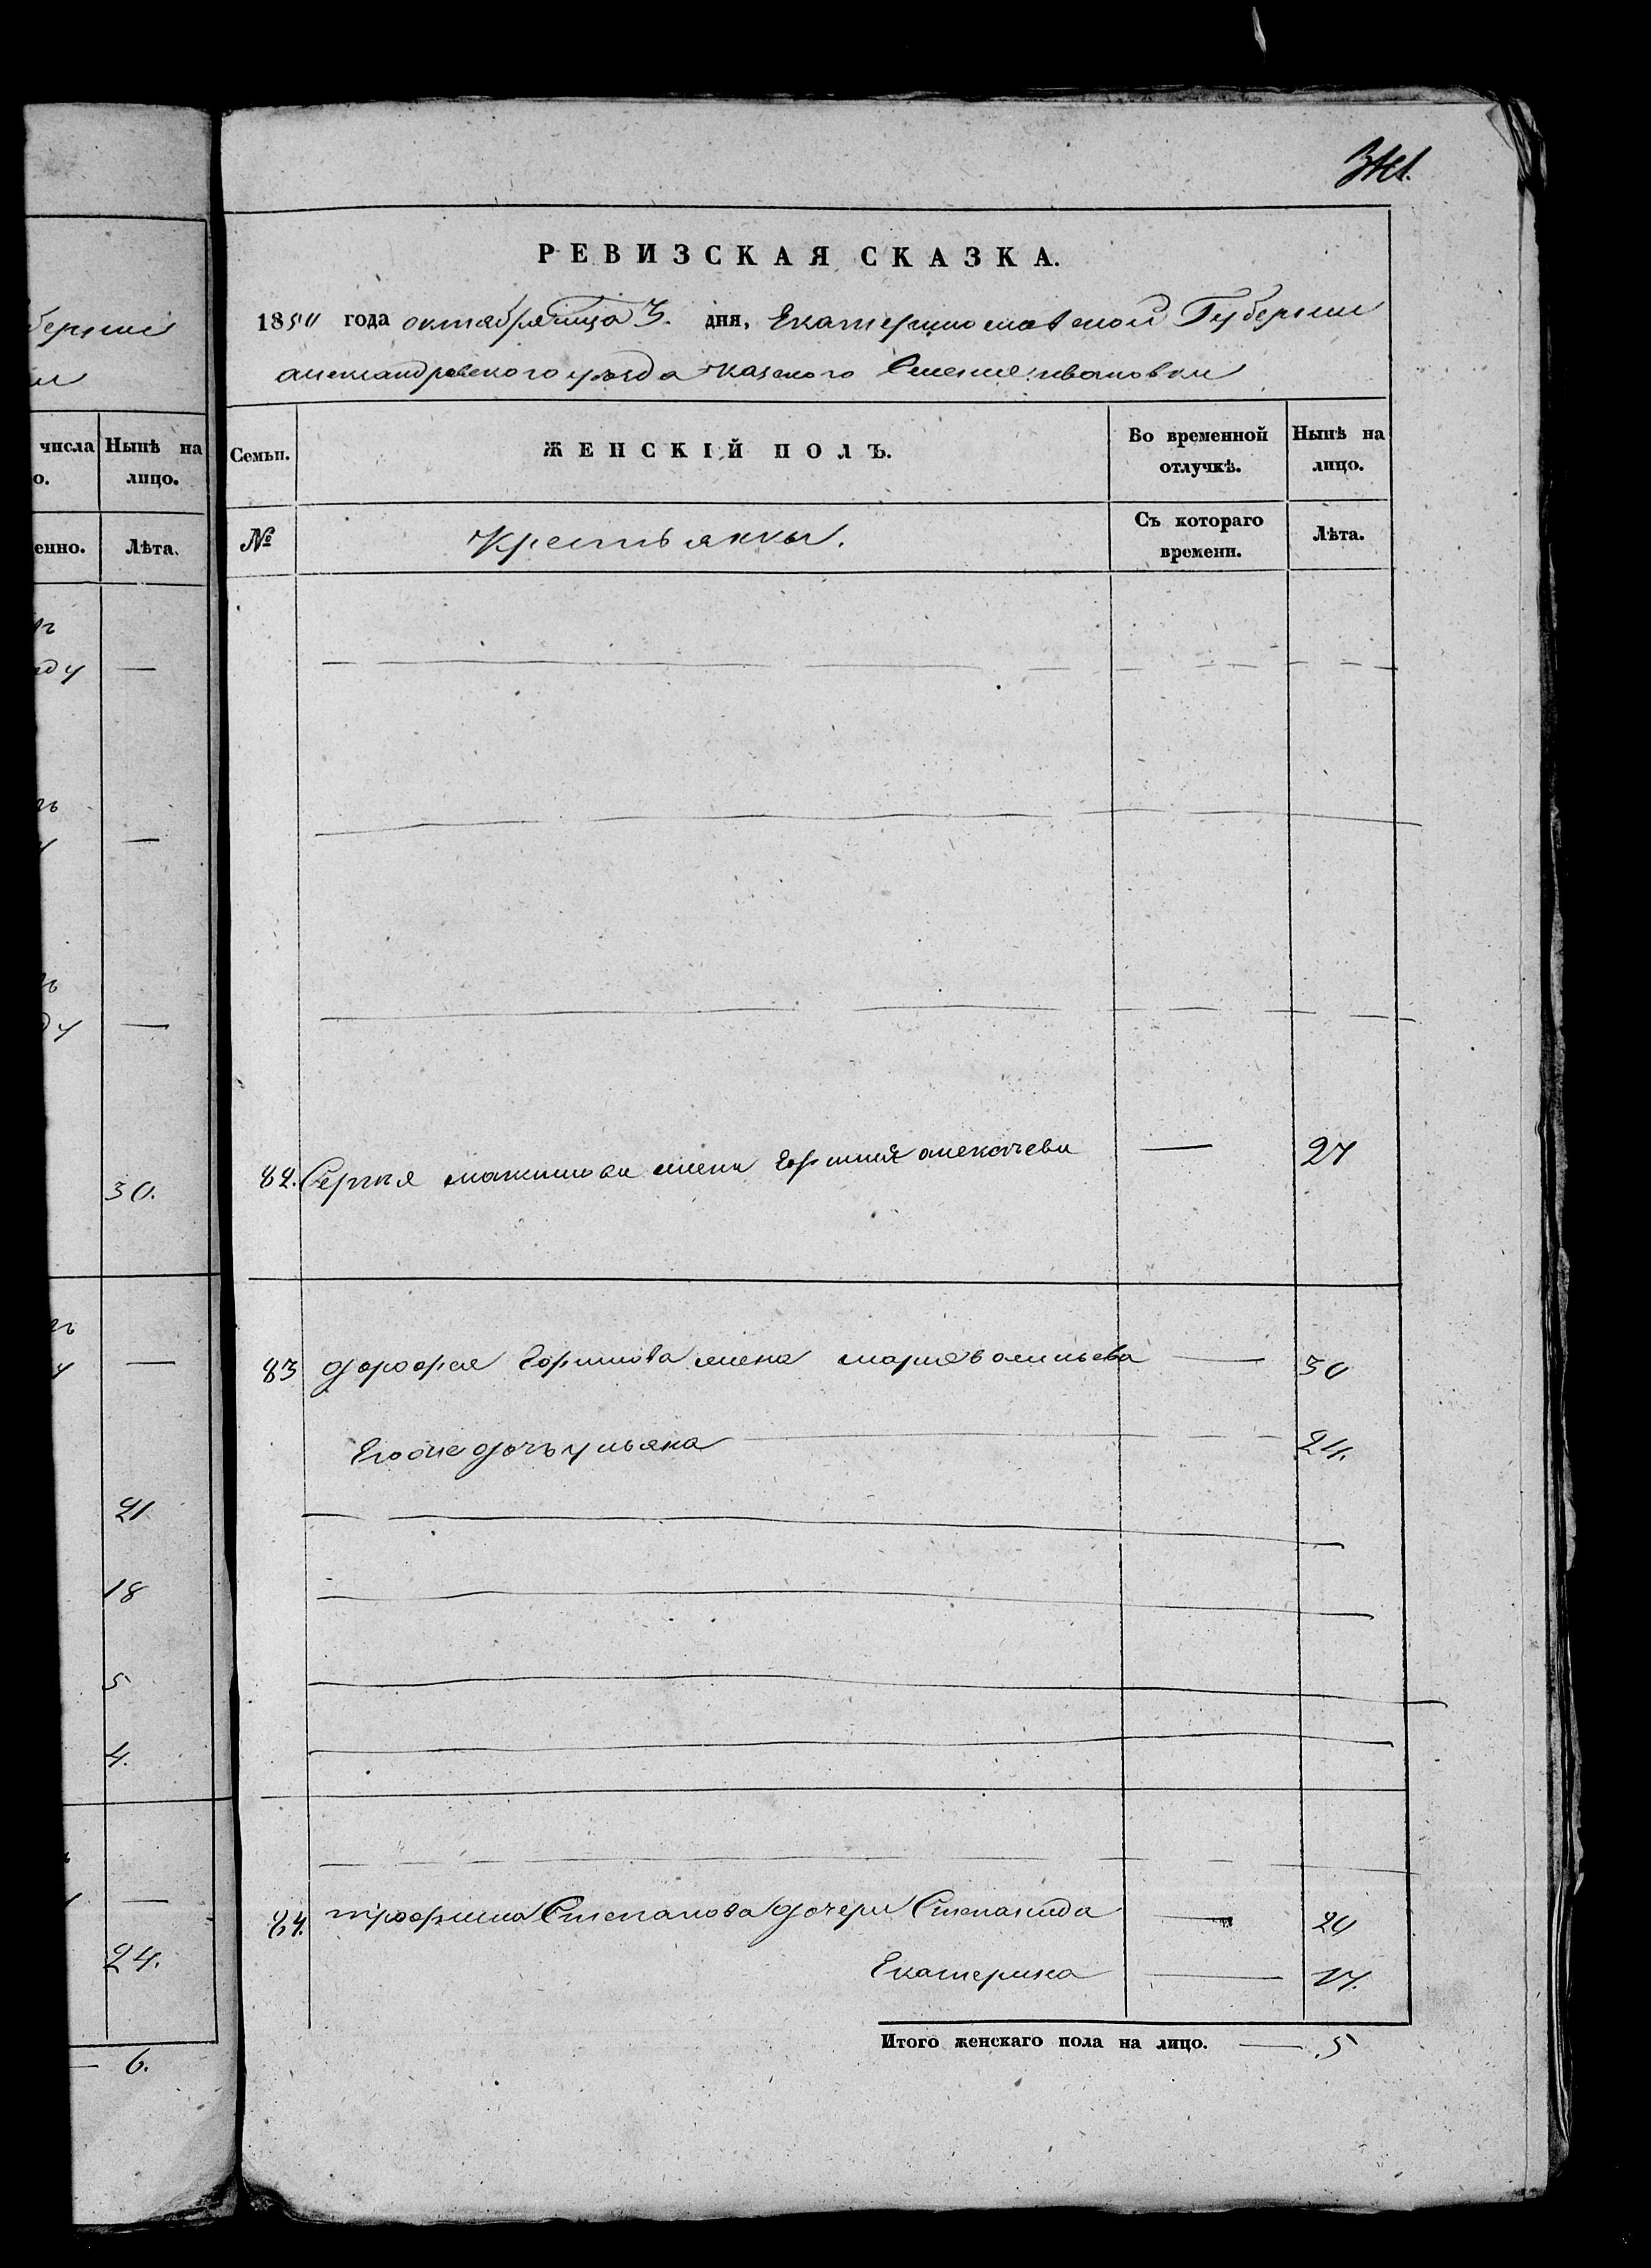 РЕВИЗСКАЯ СКАЗКА.
1850 года октября мца 3. дня, Екатеринославской Губернии
александровского уезда казеного Селение: ивановки
числа Нынѣ на
о. лицо.
Семьи. ЖЕНСКІЙ ПОЛЪ. Во временной отлучкѣ. Нынѣ на лицо.
енно. Лѣта.
№ Крестьянки. Съ котораго времени. Лѣта.
30.
82. Сергея максимова жена алексеева — 27
83 дорофея Ефимова жена мария васильева — 30
Егоже дочь ульяна — 24.
21
18
5
4.
84. трофима Степанова дочери Степанида — 20
24.
Екатерина — 17.
Итого женскаго пола на лицо. — 5
6.